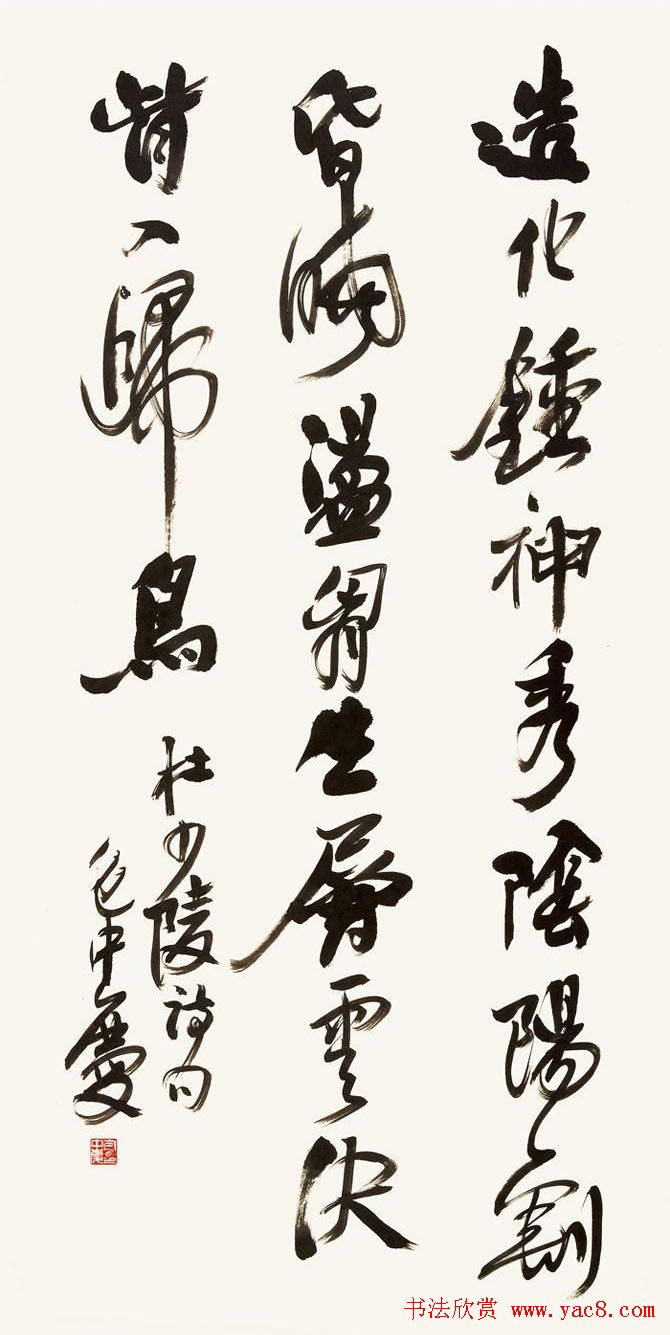 造化鍾神秀陰陽割
昏曉盪胷生層雲决
眥入歸鳥
杜少陵詩句
包中慶
书法欣赏 www.yac8.com